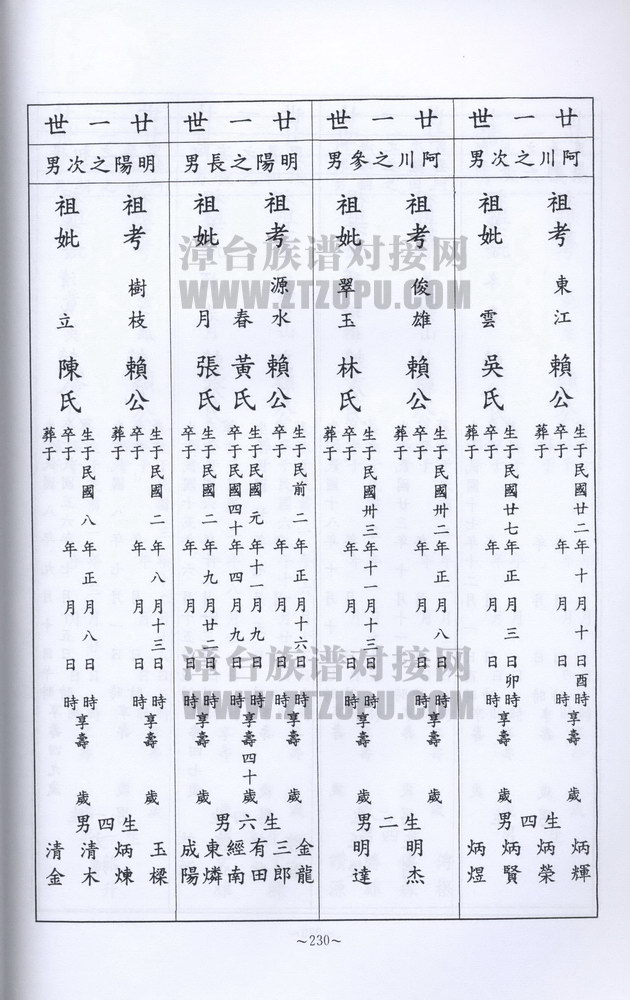 廿一世
阿川之次男
祖考 東江 賴公
生于民國廿二年十月十日酉時
卒于 年 月 日 時享壽 歲
葬于
祖妣 雲 吳氏
生于民國廿七年正月三日卯時
卒于 年 月 日 時享壽 歲
葬于
生四男
炳輝
炳榮
炳賢
炳煜
廿一世
阿川之參男
祖考 俊雄 賴公
生于民國卅二年正月八日 時
卒于 年 月 日 時享壽 歲
葬于
祖妣 翠玉 林氏
生于民國卅三年十一月十三日 時
卒于 年 月 日 時享壽 歲
葬于
生二男
明杰
明達
廿一世
明陽之長男
祖考 源水 賴公
生于民前二年正月十六日 時
卒于 年 月 日 時享壽 歲
祖妣 春 黃氏
生于民國元年十一月九日 時
卒于民國四十年四月九日 時享壽四十歲
月 張氏
生于民國二年九月廿二日 時
卒于 年 月 日 時享壽 歲
生六男
金龍
三郎
有田
經南
東燐
成陽
廿一世
明陽之次男
祖考 樹枝 賴公
生于民國二年八月十三日 時
卒于 年 月 日 時享壽 歲
葬于
祖妣 立 陳氏
生于民國八年正月八日 時
卒于 年 月 日 時享壽 歲
葬于
生四男
玉樑
炳煉
清木
清金
~230~
漳台族谱对接网
WWW.ZTZUPU.COM
漳台族谱对接网
WWW.ZTZUPU.COM